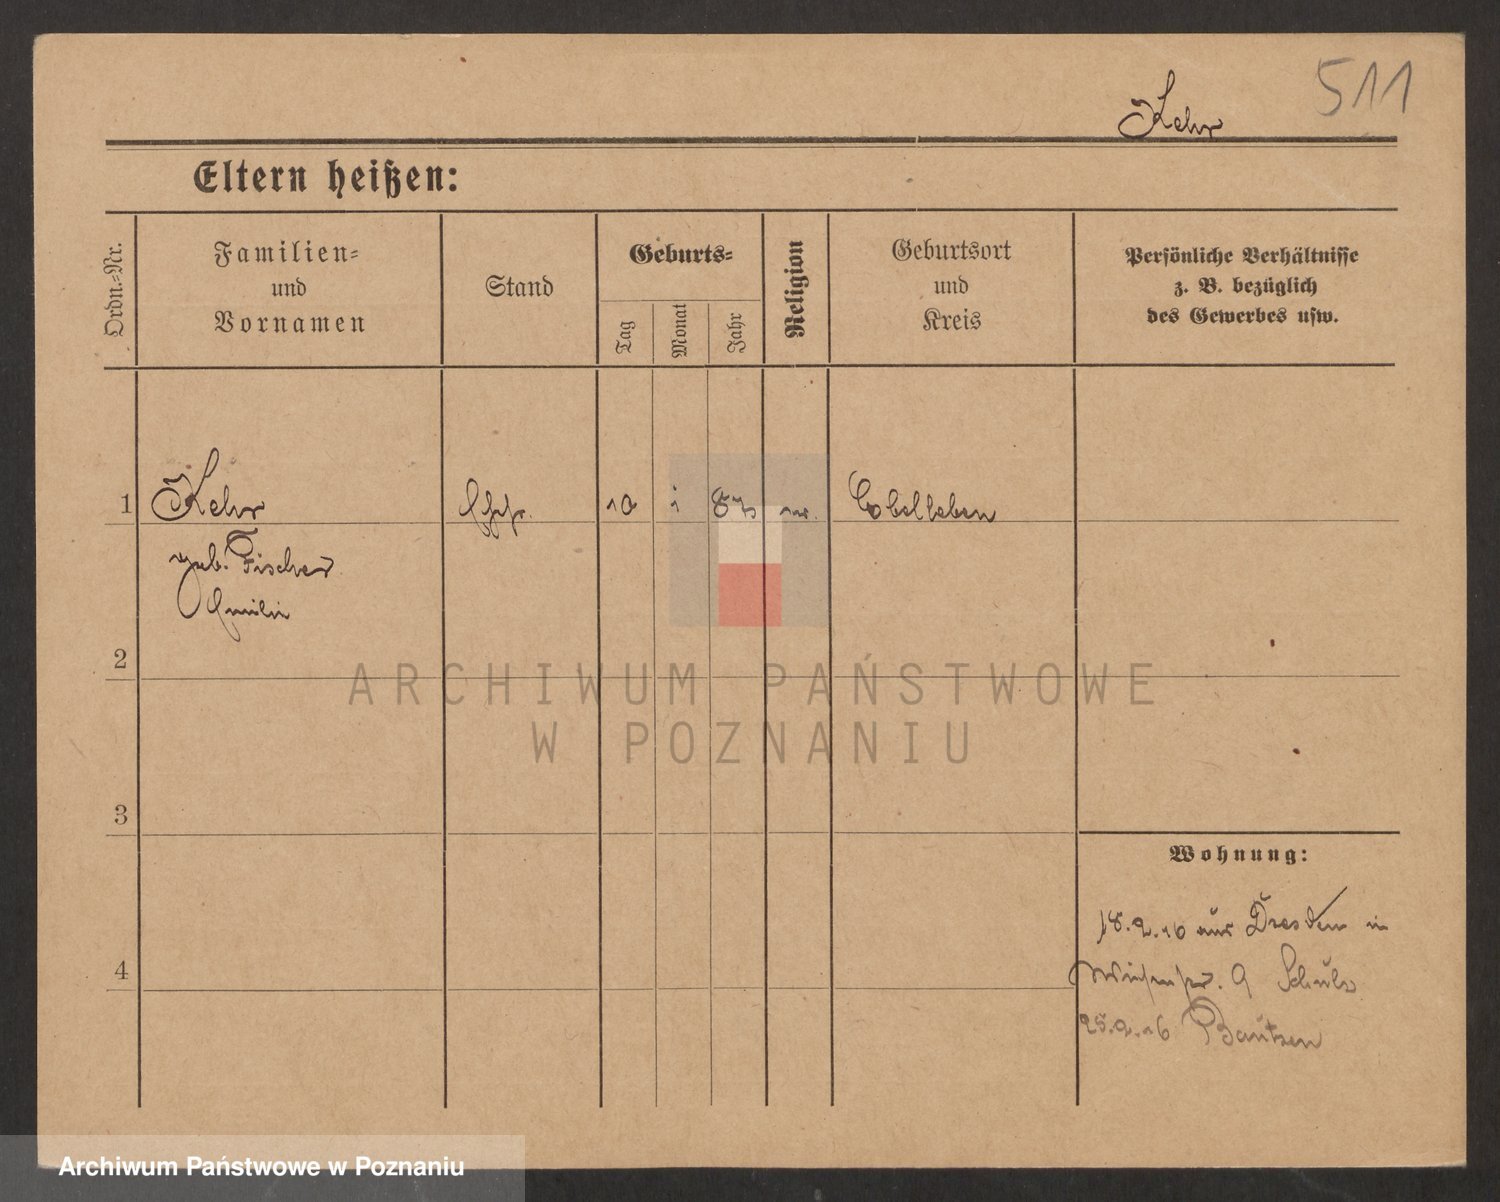 511
Kehr
Eltern heißen:
Ordn.-Nr.
Familien-
und
Vornamen
Stand
Geburts-
Tag
Monat
Jahr
Religion
Geburtsort
und
Kreis
Persönliche Verhältnisse
z. B. bezüglich
des Gewerbes usw.
1 Kehr 10 Ebelleben
geb. Fischer
Emilie
2
3
4
Wohnung:
18.2.16 aus Dresden in
9 Schulz
25.2.16 Bautzen
ARCHIWUM PAŃSTWOWE
W POZNANIU
Archiwum Państwowe w Poznaniu